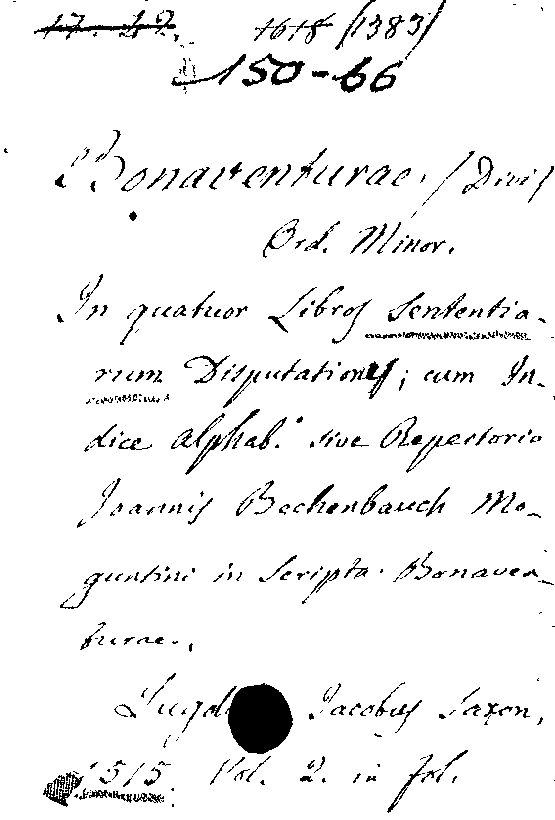 17. 42. 1618 /1383/
150-66
Bonaventurae, /Divi/
Ord. Minor.
In quatuor Libros Sententia-
rum Disputationes; cum In-
dice alphab. sive Repertorio
Joannis Beckenbauch Mo-
guntini in Scripta Bonaven-
turae.
Lugd Jacobus Saxon,
1515. Vol. 2. in fol.